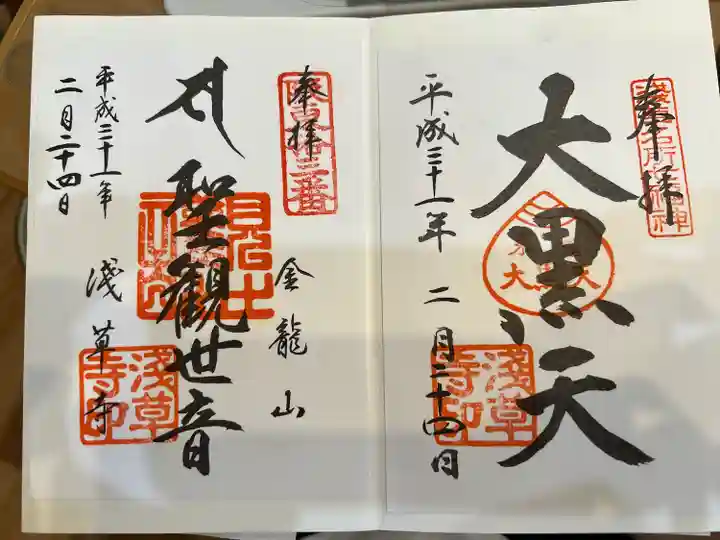 奉拝
大黒天
平成三十一年 二月二十四日
浅草寺印
奉拝
坂東十三番
金龍山
聖観世音
浅草寺
浅草寺印
平成三十一年
二月二十四日